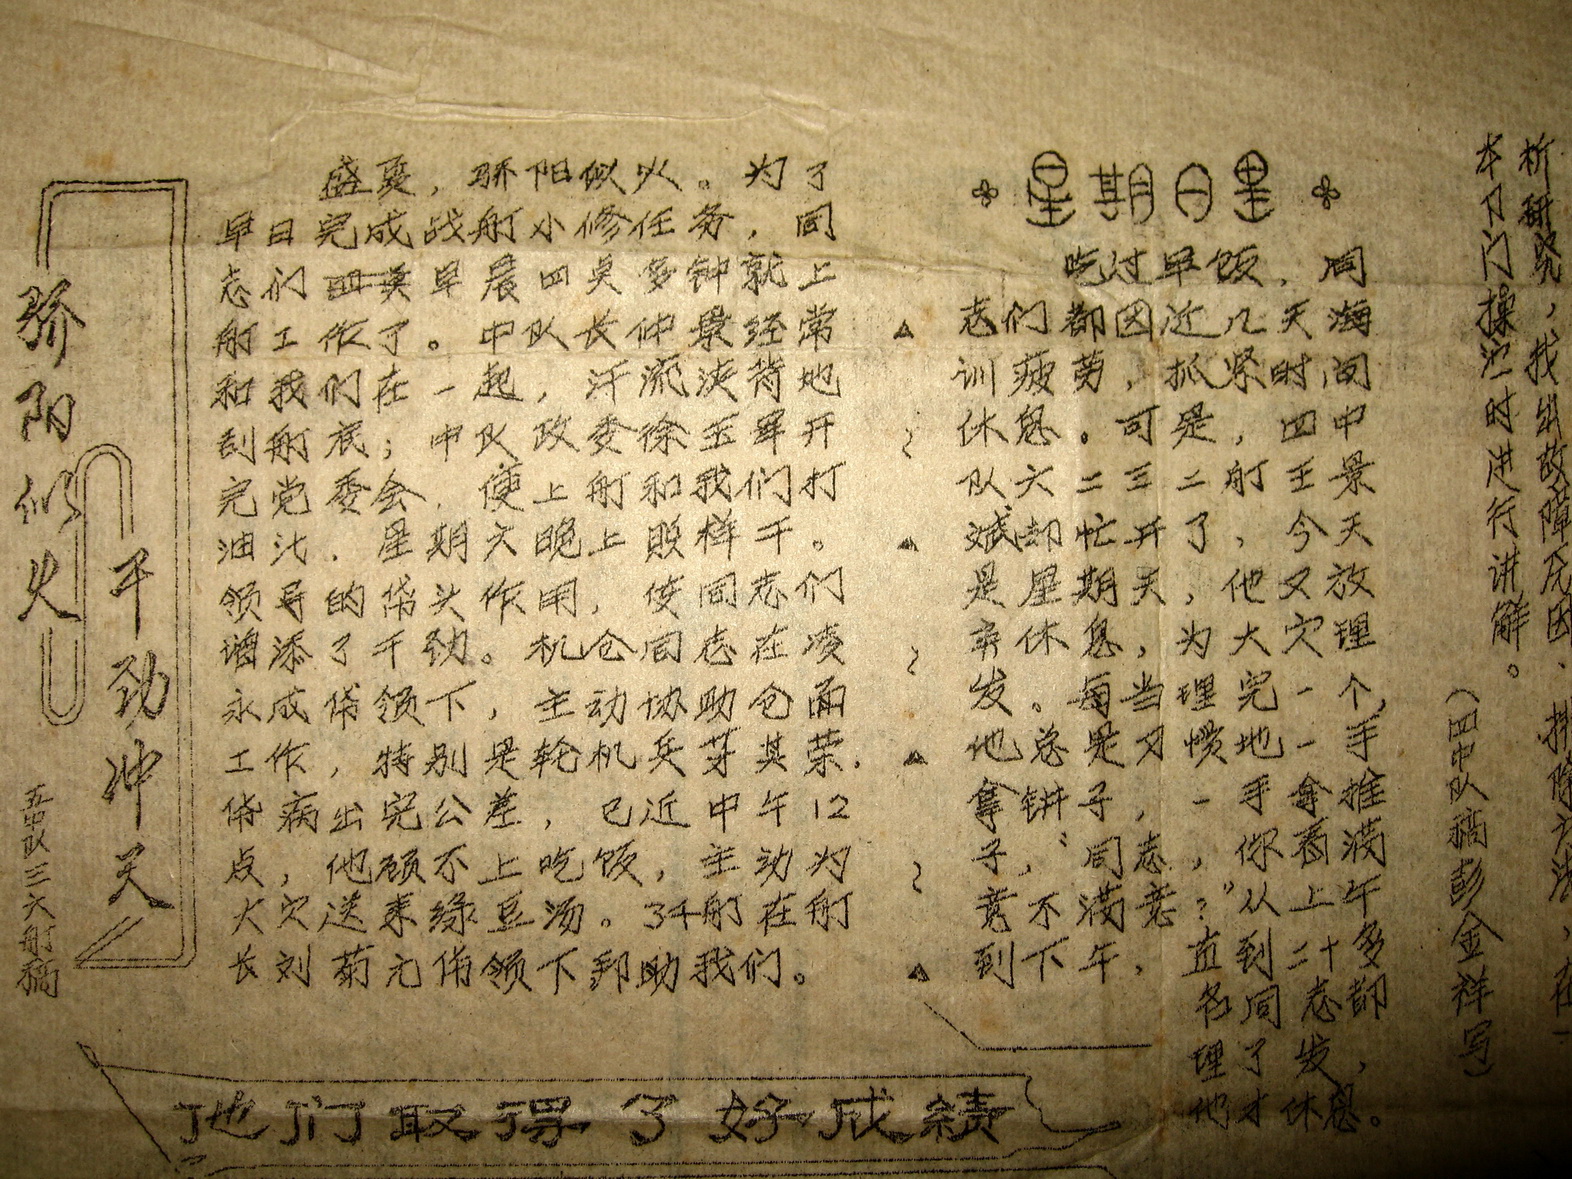 析研究，找出故障原因、排除方法，在一
本刀门操港时进行讲解。
（四中队稿彭金祥写）
星期日里
吃过早饭，同
志们都因近几天海
训疲劳，抓紧时间
休息。可是，四中
队六二三二艇王景
斌却忙开了，今天
是星期天，他又放
弃休息，为大家理
发。每当理完一个，
他总是习惯地一手
拿子，一手拿推
子，“同志，你看满
意不满意？”从上午
到下午，直到二十多
名同志都
理了发，
他才休息。
骄阳似火
干劲冲天
五中队三六艇稿
盛夏，骄阳似火。为了
早日完成战艇小修任务，同
志们早晨四点多钟就上
艇工作了。中队长仲景经常
和我们在一起，汗流浃背地
刮艇底；中队政委徐玉军开
完党委会，便上艇和我们打
油漆。星期六晚上照样干。
领导的带头作用，使同志们
增添了干劲。机仓同志在凌
永成带领下，主动协助仓面
工作，特别是轮机兵芽其荣，
带病出完公差，已近中午12
点，他顾不上吃饭，主动为
大家送来绿豆汤。34艇在艇
长刘菊元带领下帮助我们。
他们取得了好成绩